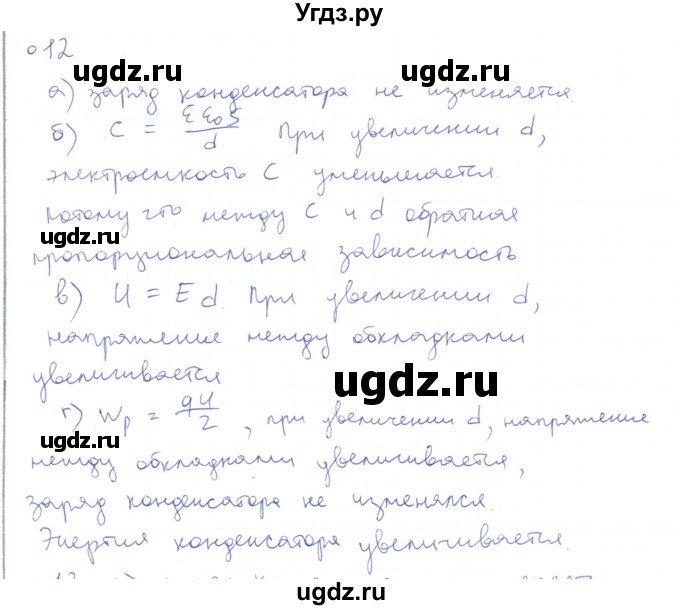 Угдз.ру
012
ugdz.ru ugdz.ru
а) заряд конденсатора не изменяется.
б) C = εε₀S/d При увеличении d,
электроемкость C уменьшается.
потому что между C и d обратная
ugdz.ru
пропорциональная зависимость
в) U = Ed. При увеличении d,
напряжение между обкладками
увеличивается
ugdz.ru
г) Wp = qU/2, при увеличении d, напряжение
ugdz.ru
между обкладками увеличивается,
заряд конденсатора не изменялся.
Энергия конденсатора увеличивается.
ugdz.ru ugdz.ru